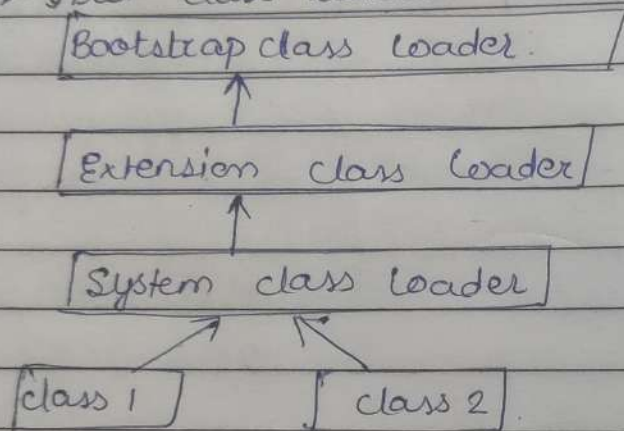 Bootstrap class loader.
Extension class loader
System class loader
class 1 class 2